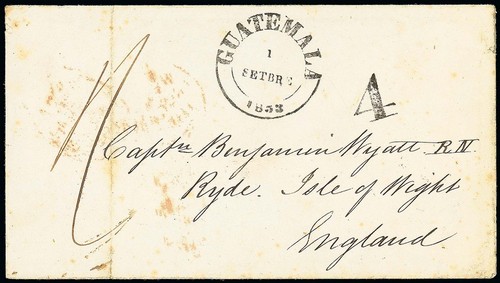 GUATEMALA
1
SETBRE
1853
4
Captn Benjamin Wyatt R.N
Ryde. Isle of Wight
England.